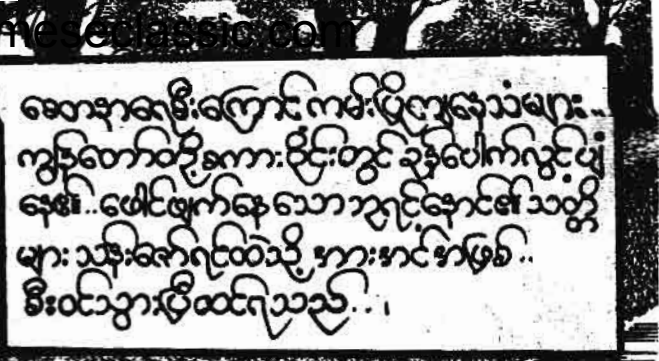 meseclassic.com
စေတနာရေစီးကြောင့် ကမ်းပြိုကျနေသံများ..
ကျွန်တော်တို့စကားဝိုင်းတွင် ခုန်ပေါက်လွင့်ပျံ
နေ၏..ဖောင်ဖျက်နေသောဘုရင့်နောင်၏ သတ္တိ
များ သန်းဇော်ရင်ထဲသို့ အားအင်အဖြစ်..
စီးဝင်သွားပြီထင်ရသည်..၊